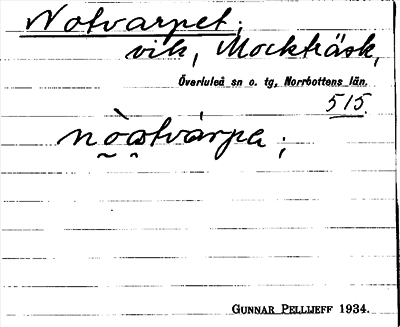 Notvarpet;
vik, Mockträsk,
Överluleå sn o. tg, Norrbottens län.
515
nòo̰stvárpa;
GUNNAR PELLIJEFF 1934.